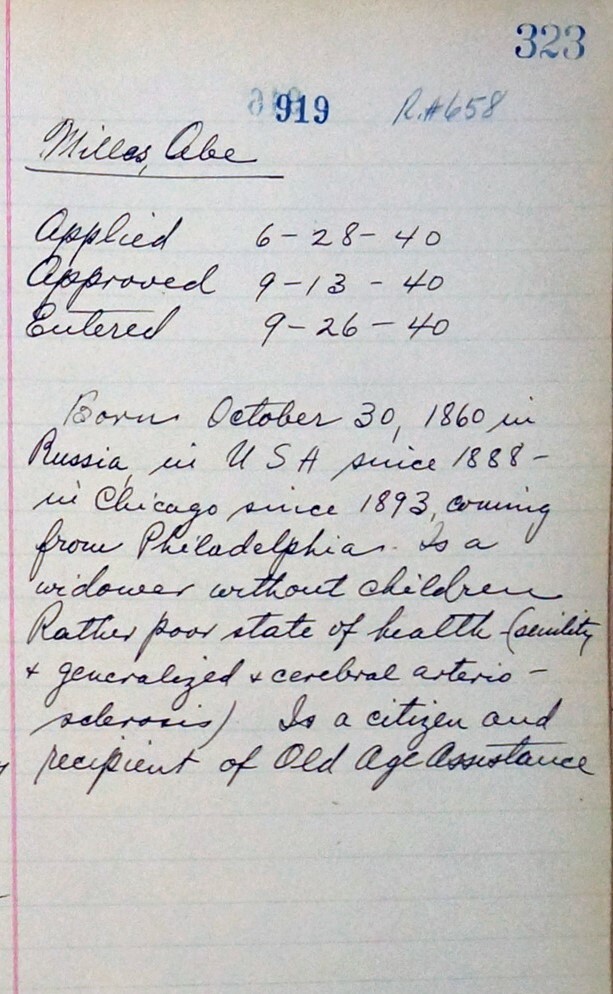 323
919 R.#658
Milles, Abe
Applied 6-28-40
Approved 9-13-40
Entered 9-26-40
Born October 30, 1860 in
Russia, in USA since 1888-
in Chicago since 1893, coming
from Philadelphia. Is a
widower without children
Rather poor state of health-(senility
+ generalized + cerebral arterio-
sclerosis) Is a citizen and
recipient of Old Age Assistance